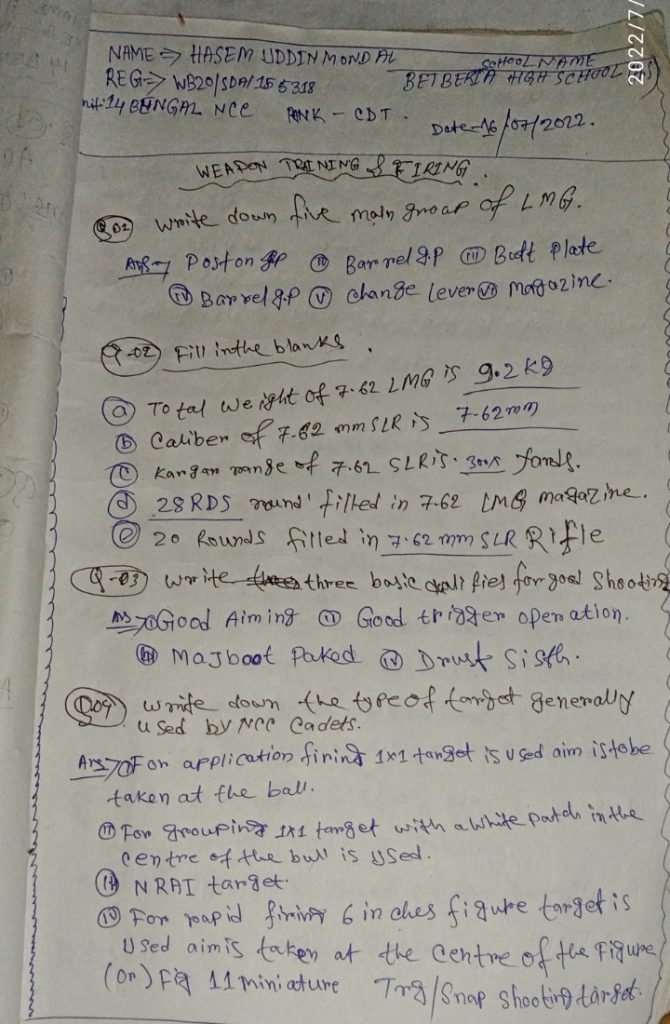 2022/7/
NAME => HASEM UDDIN MONDAL
SCHOOL NAME
REG=> WB20/SDA/155318
BETBERIA HIGH SCHOOL
Unit-14 BENGAL NCC RANK - CDT.
Date=16/07/2022.
WEAPON TRAINING & FIRING.
Q01 write down five main groap of LMG.
Ans→ Poston gp (ii) Barrel g.p (iii) Butt Plate
(iv) Barrel g.p (v) change lever (vi) magazine.
Q-02 Fill inthe blanks.
(a) Total weight of 7.62 LMG is 9.2 Kg
(b) Caliber of 7.62 mm SLR is 7.62mm
(c) Kargar range of 7.62 SLR is. 300x Yards.
(d) 28 RDS round' filled in 7.62 LMG magazine.
(e) 20 Rounds filled in 7.62 mm SLR Rifle
Q-03 write three basic qualifies for good Shooting
Ans→(i) Good Aiming (ii) Good trigger operation.
(iii) Majboot Paked (iv) Drust Sisth.
Q04 write down the type of target generally
used by NCC Cadets.
Ans→(i) For application firing 1x1 target is used aim istobe
taken at the ball.
(ii) For grouping 1x1 target with a white patch in the
centre of the bull is used.
(iii) NRAI target.
(iv) For rapid firing 6 inches figure target is
used aim is taken at the centre of the Figure
(or) Fig 11 miniature Trg/Snap shooting target.